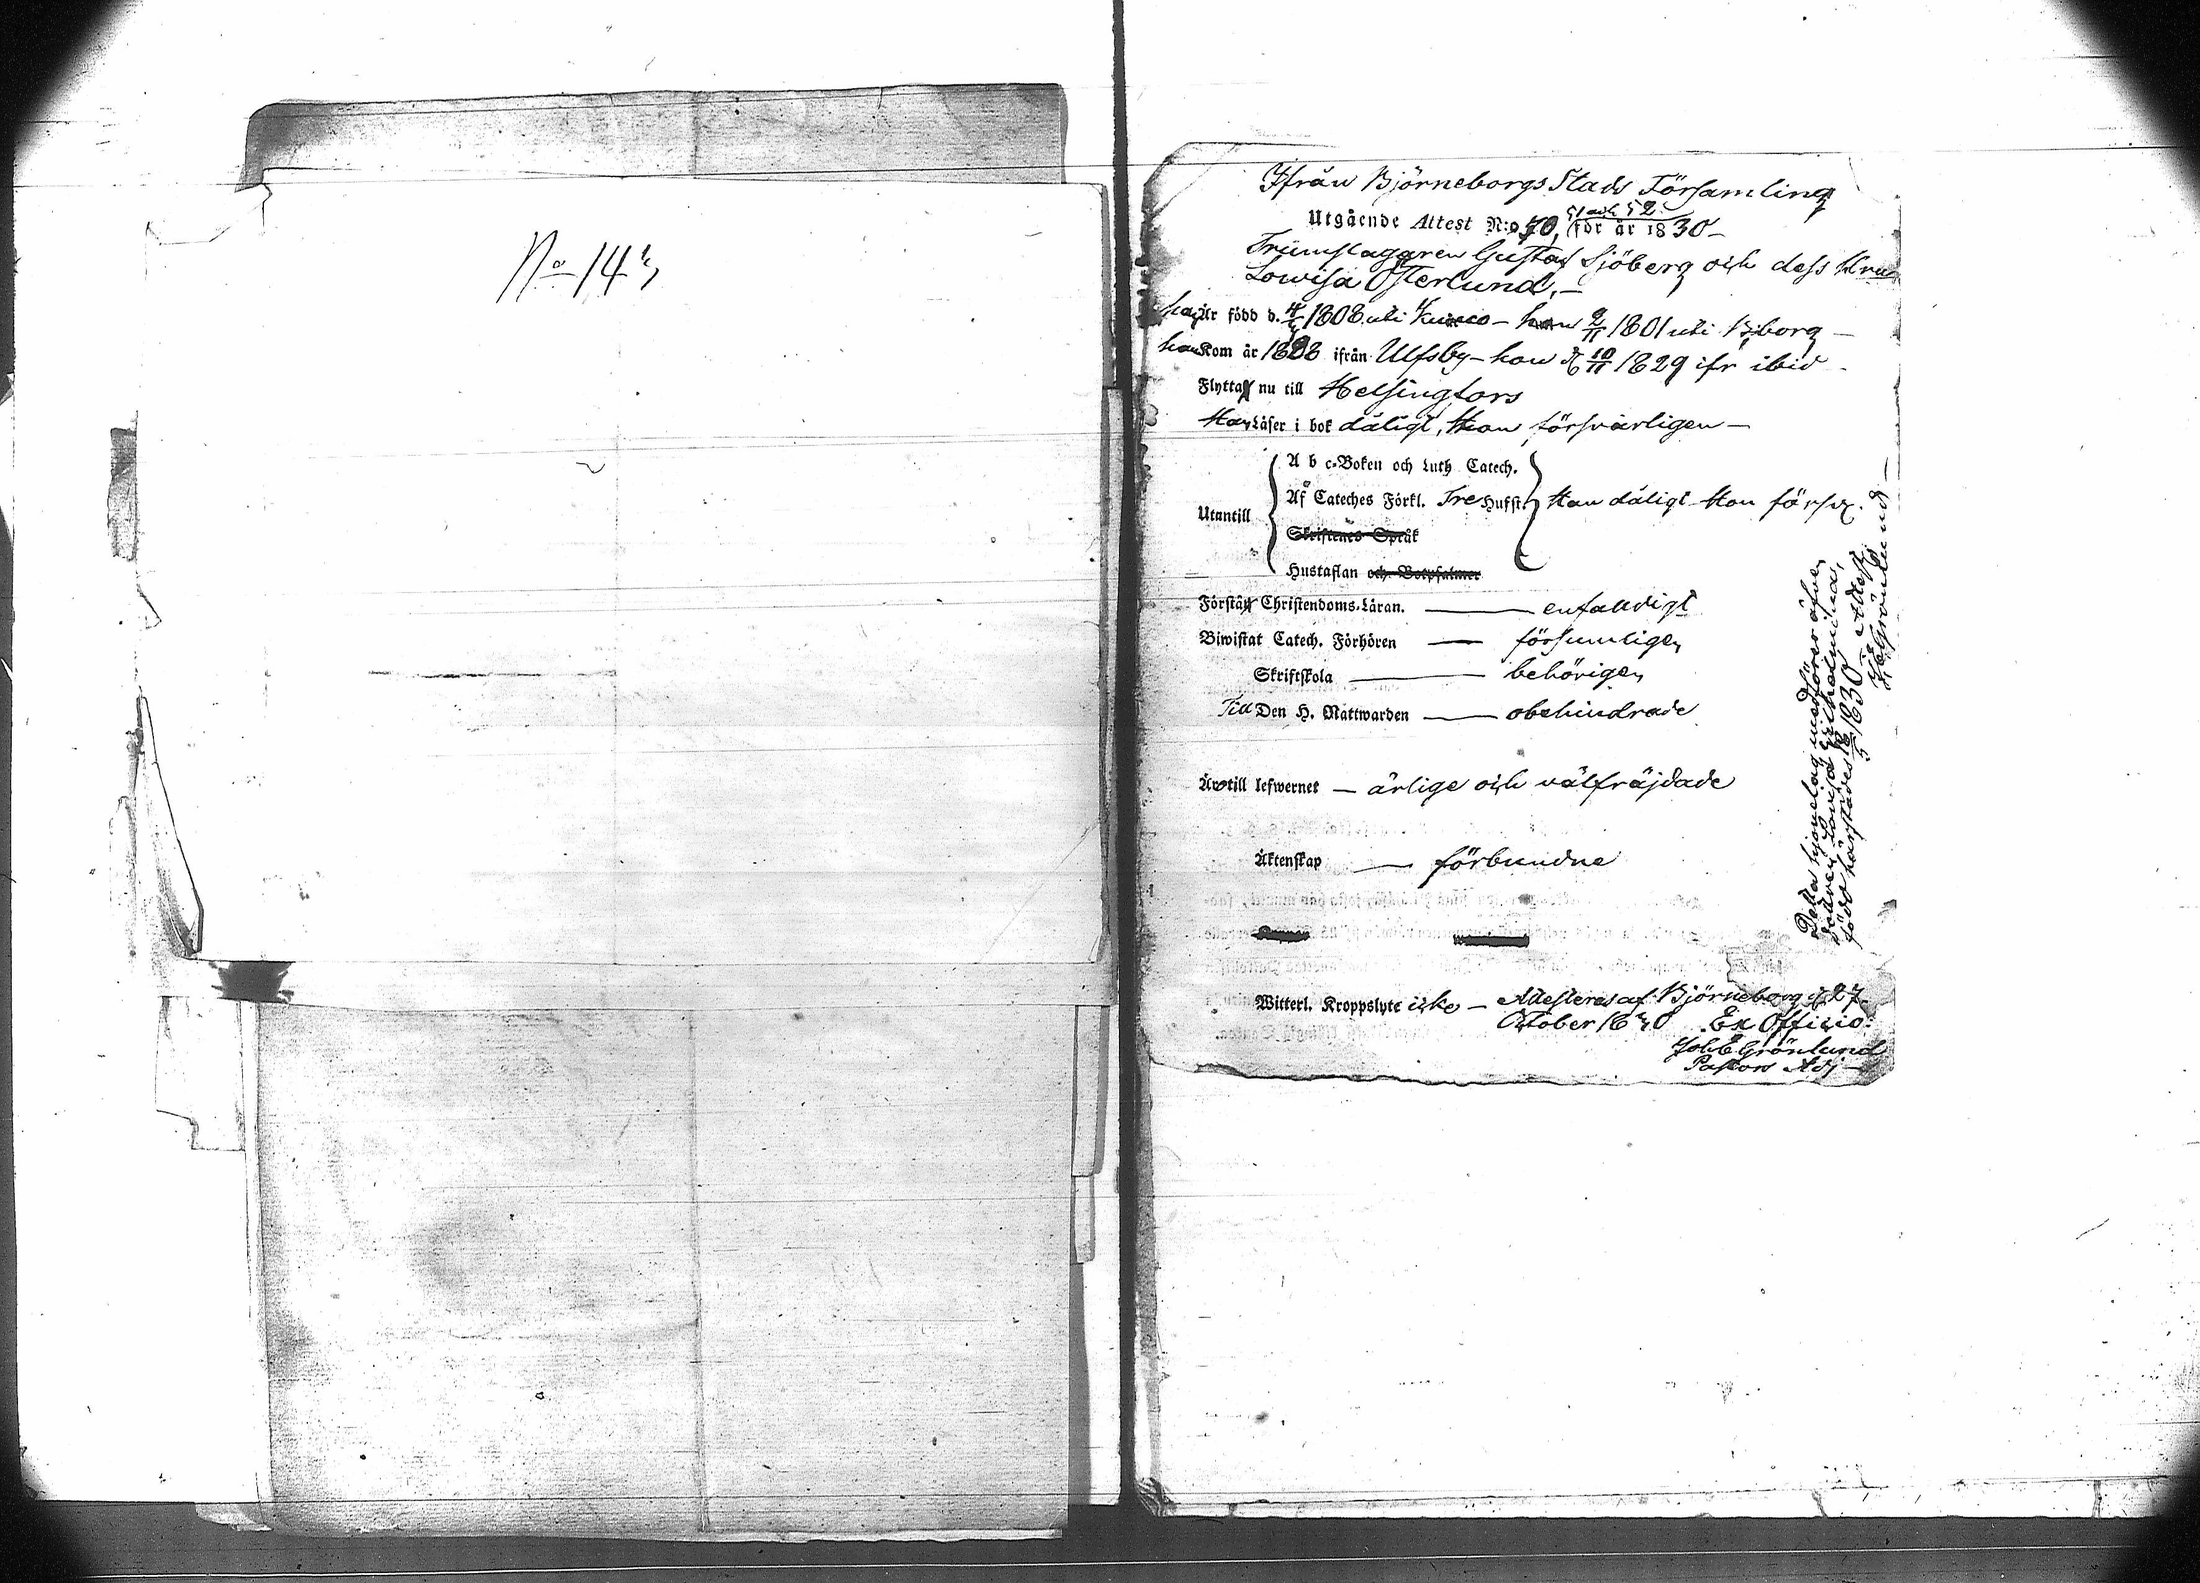 No 143
Ifrån Björneborgs Stads Församling
51 och 52
Utgående Attest N:o 50, för år 1830 –
Trumslagaren Gustaf Sjöberg och dess Hru
Lowisa Österlund, –
han Är född d. 1808 uti Kumo – hon 9/11 1801 uti Bjborg –
han Kom år 1828 ifrån Ulfsby – hon d 10/11 1829 ifr ibid –
Flytta nu till Helsingfors
Han Läser i bok dåligt, Hon försvarligen –
A b c-Boken och Luth Catech.
Utantill Af Cateches Förkl. Tre Hufst. Han dåligt Hon försv.
Skriftenes Språk
Hustaflan och Botpsalmer
Förstå Christendoms-Läran. — enfaldigt
Biwistat Catech. Förhören — försumligen
Skriftskola — behörigen
Till Den H. Nattwarden — obehindrade
Äro till lefwernet — ärlige och välfräjdade
Äktenskap — förbundne
Witterl. Kroppslyte icke – Attesteras af Björneborg d 27
October 1830 Ex Officio:
Joh E Grönlund
Pastors Adj –
Detta hjonelag medförer äfven
dottren Lovisa Wilhelmina,
född härstädes 18/5 1830 – Attest
JEGrönlund –